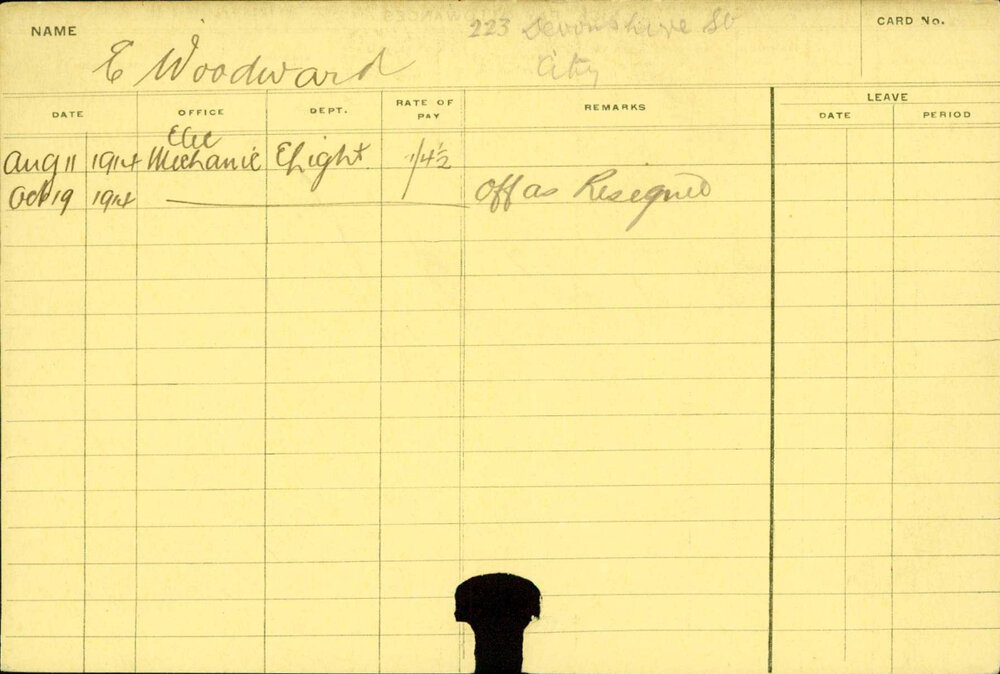 NAME E Woodward 223 Devonshire St CARD No.
City
DATE OFFICE DEPT. RATE OF PAY REMARKS LEAVE
DATE PERIOD
Aug 11 1914 Elec Mechanic E Light 1/4½
Oct 19 1914 Off as Resigned